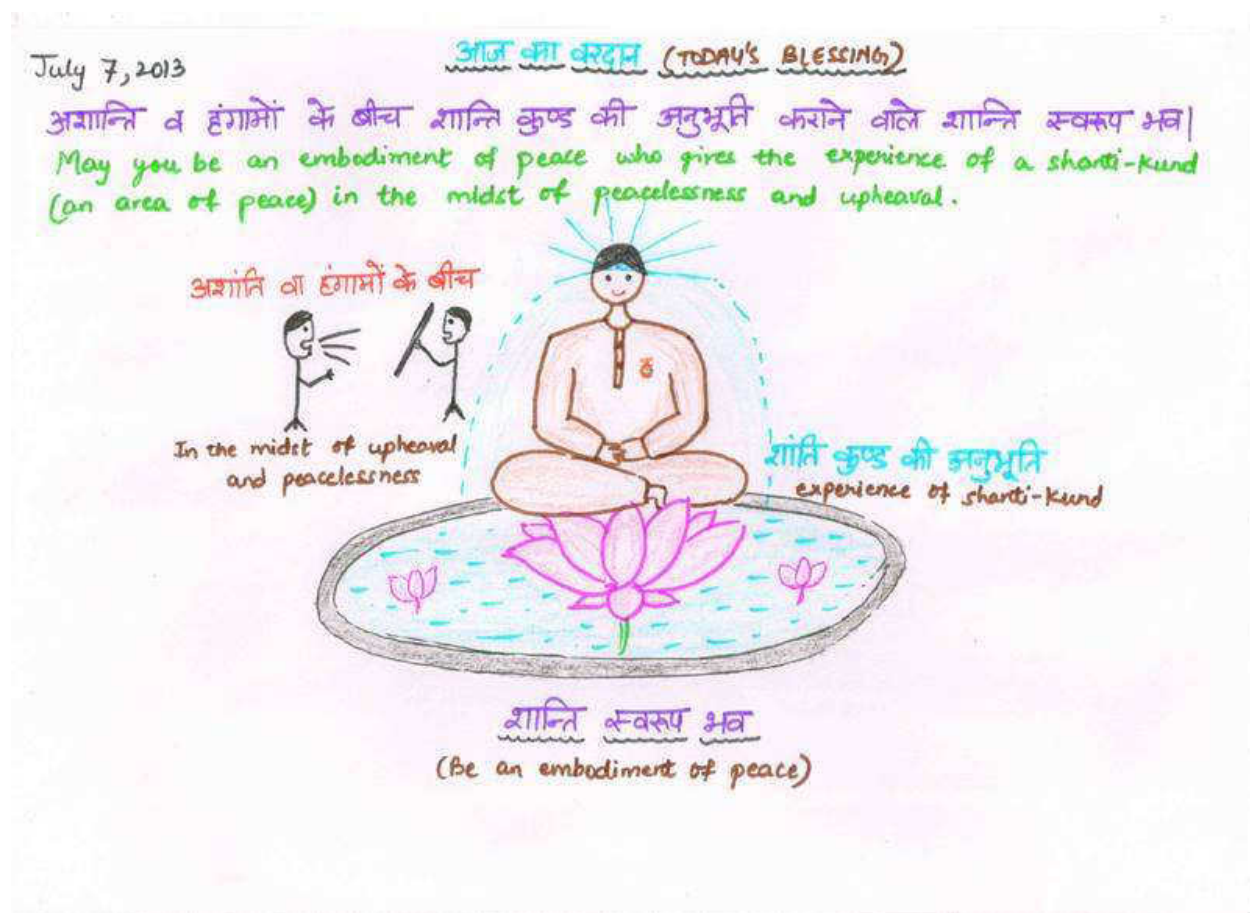 July 7, 2013
आज का वरदान (TODAY'S BLESSING)
अशान्ति व हंगामों के बीच शान्ति कुण्ड की अनुभूति कराने वाले शान्ति स्वरूप भव|
May you be an embodiment of peace who gives the experience of a shanti-kund
(an area of peace) in the midst of peacelessness and upheaval.
अशांति वा हंगामों के बीच
In the midst of upheaval
and peacelessness
शांति कुण्ड की अनुभूति
experience of shanti-kund
शान्ति स्वरूप भव
(Be an embodiment of peace)